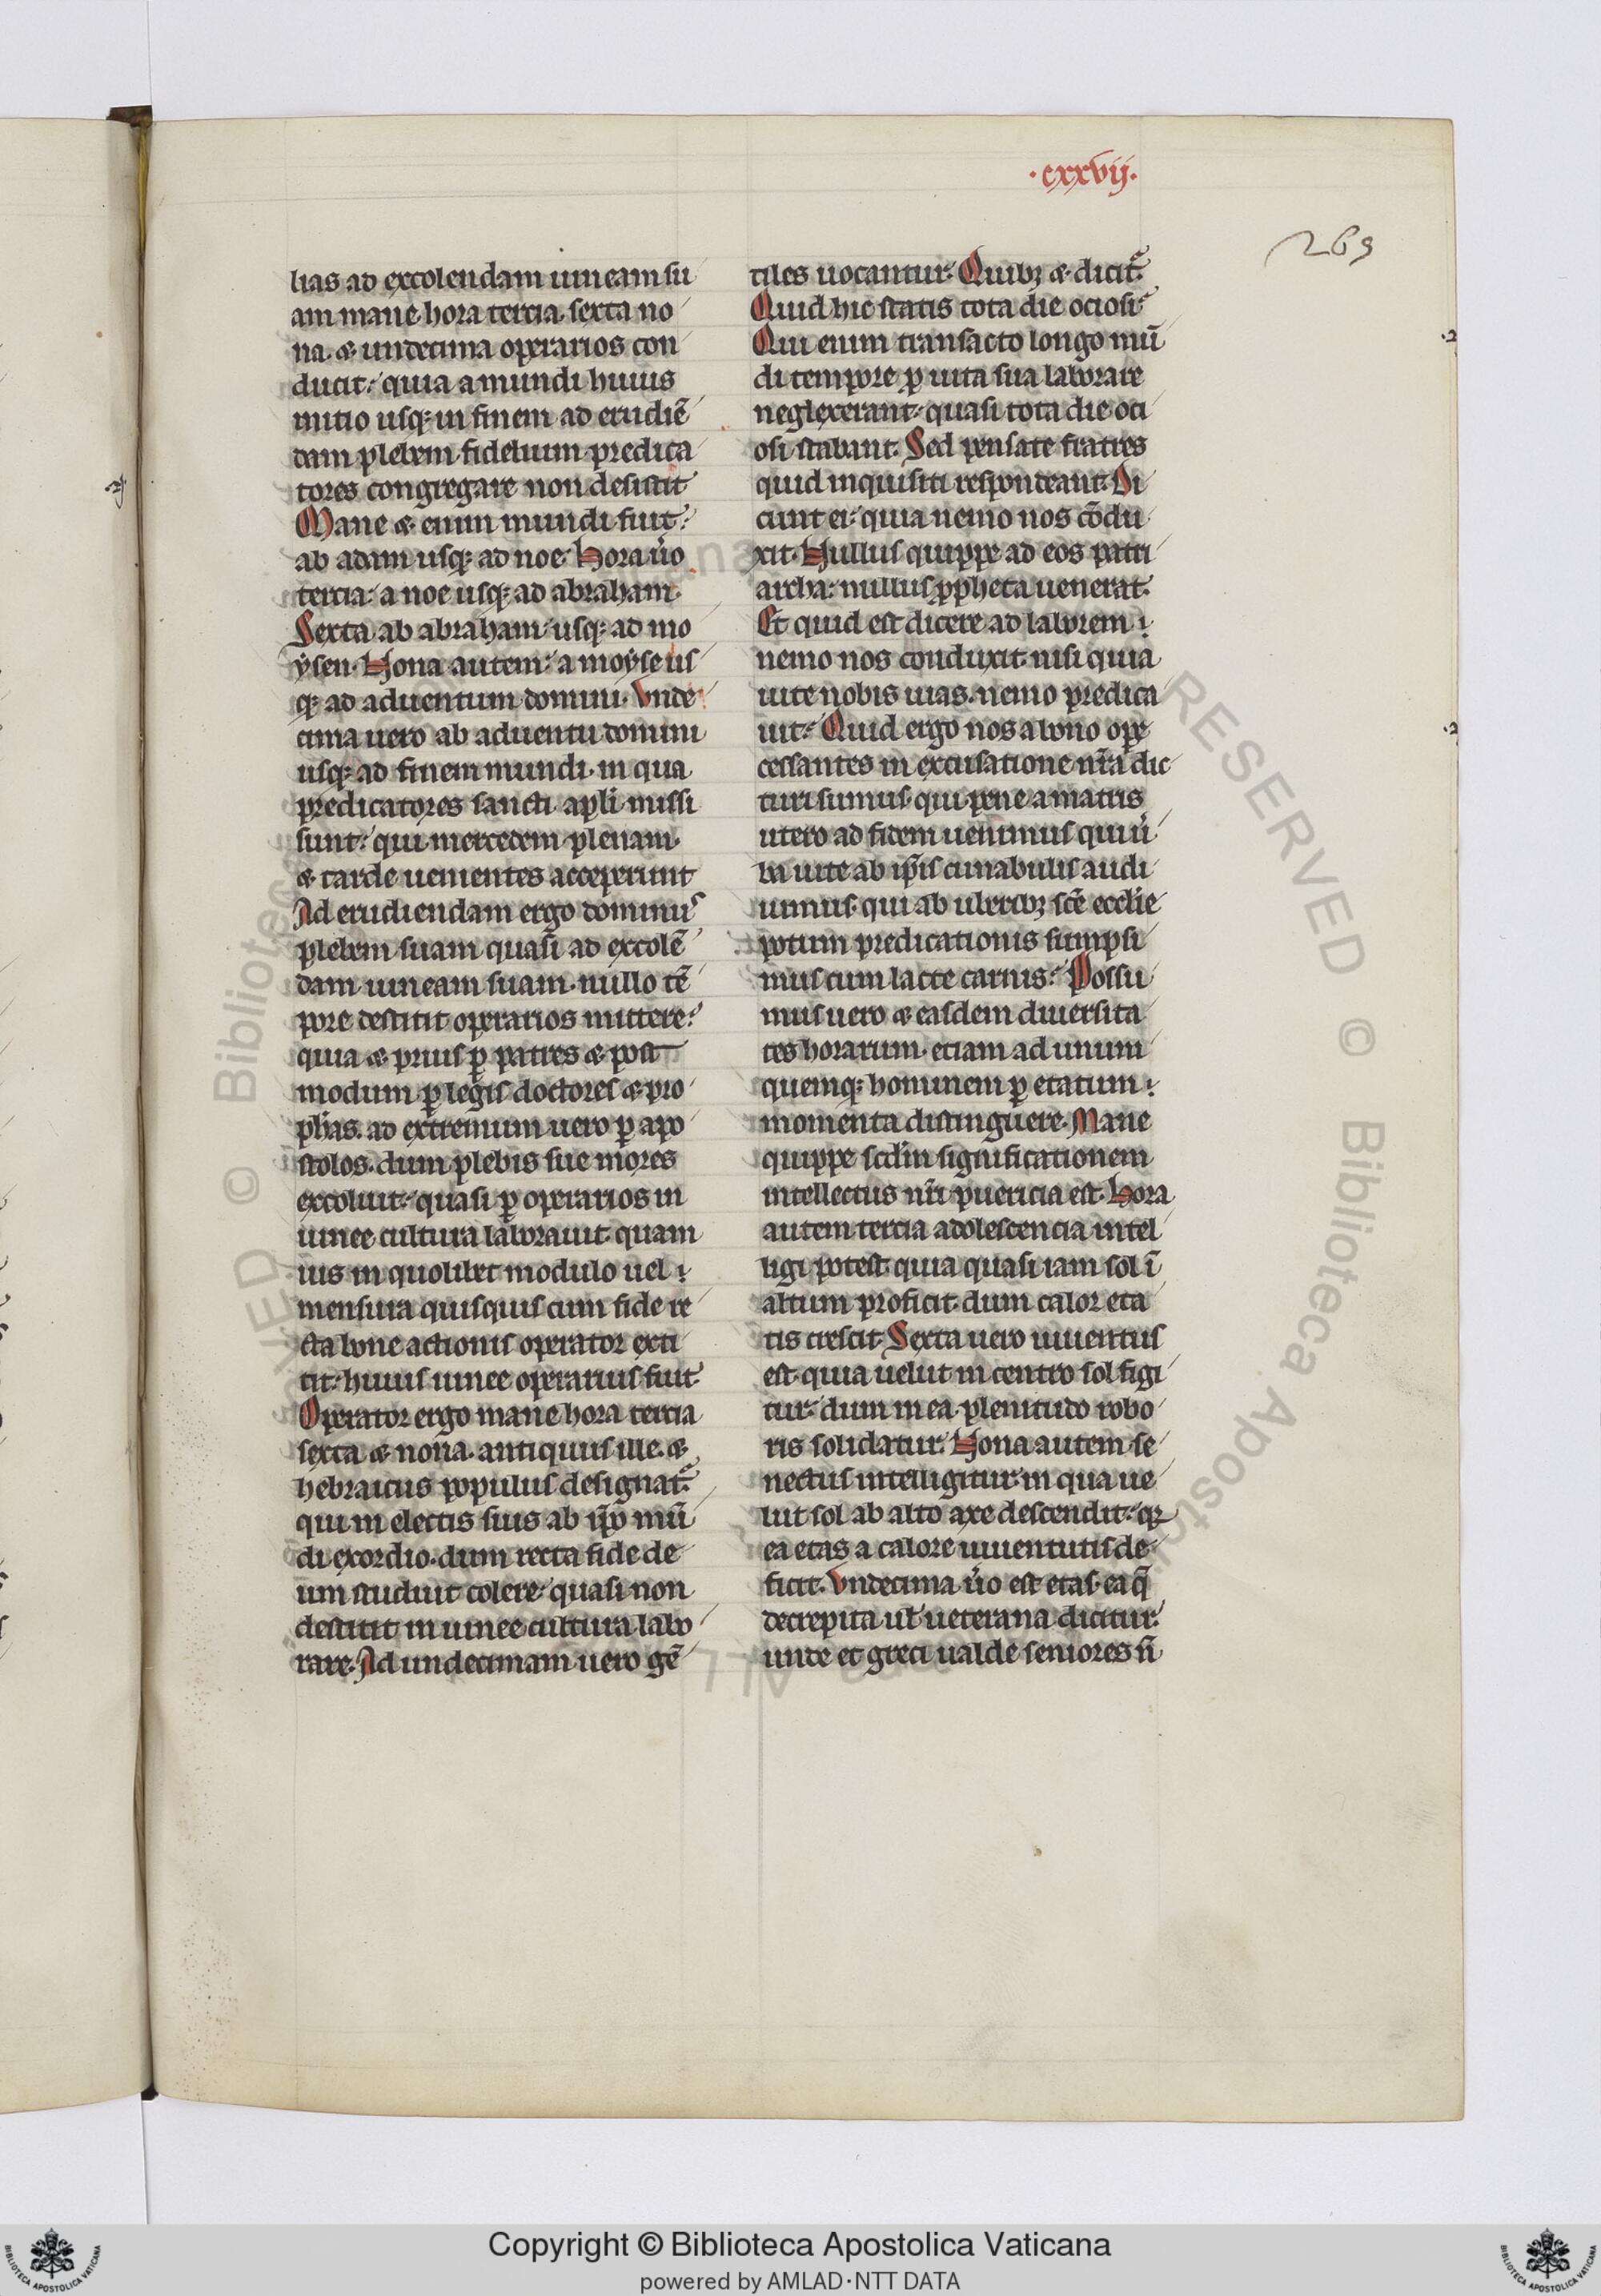 ·cxxvij·
269
lias ad excolendam uineam su
am mane hora tercia. sexta no
na. & undecima operarios con
ducit: quia a mundi huius
initio usq; in finem ad erudiē
dam plebem fidelium predica
tores congregare non desistit
Mane & enim mundi fuit:
ab adam usq; ad noe. Hora ůo
tercia: a noe usq; ad abraham.
Sexta ab abraham usq; ad mo
ẏsen. Nona autem: a moẏse us
q; ad aduentum domini. Vnde
cima uero ab aduentu domini
usq; ad finem mundi. in qua
predicatores sancti apłi missi
sunt: qui mercedem plenam.
& tarde uenientes acceperunt
Ad erudiendam ergo dominus
plebem suam quasi ad excolē
dam uineam suam. nullo tē
pore destitit operarios mittere:
quia & prius ꝑ patres & post
modum ꝑ legis doctores & pro
phās. ad extremum uero ꝑ apo
stolos. dum plebis sue mores
excoluit: quasi ꝑ operarios in
uinee cultura laborauit. quam
uis in quolibet modulo uel
mensura quisquis cum fide re
cta bone actionis operator exti
tit: huius uinee operarius fuit
Operator ergo mane hora tercia
sexta & nona. antiquus ille. &
hebraicus populus designat᷑.
qui in electis suis ab ip̄o mū
di exordio. dum recta fide de
um studuit colere: quasi non
destitit in uinee cultura labo
rare. Ad undecimam uero gē
tiles uocantur. Quibꝫ & dicit᷑.
Quid hic statis tota die ociosi
Qui enim transacto longo mū
di tempore ꝑ uita sua laborare
neglexerant: quasi tota die oci
osi stabant. Sed pensate fratres
quid inquisiti respondeant. Di
cunt ei: quia nemo nos cōdu
xit. Nullus quippe ad eos patri
archa: nullus ꝓpheta uenerat.
Et quid est dicere ad laborem
nemo nos conduxit. nisi quia
uite nobis uias. nemo predica
uit: Quid ergo nos a bono oꝑe
cessantes in excusatione nr̄a dic
turi sumus. qui pene a matris
utero ad fidem uenimus qui ů
ba uite ab ip̄is cunabulis audi
uimus. qui ab uberibꝫ scē ecclie
potum predicationis sumpsi
mus cum lacte carnis: Possu
mus uero & easdem diuersita
tes horarum. etiam ad unum
quemq; hominem ꝑ etatum
momenta distinguere. Mane
quippe scdm̄ significationem
intellectus nr̄i puericia est. Hora
autem tercia adolescencia intel
ligi potest. quia quasi iam sol ī
altum proficit. dum calor eta
tis crescit. Sexta uero iuuentus
est. quia uelut in centro sol figi
tur: dum in ea plenitudo robo
ris solidatur. Nona autem se
nectus intelligitur. in qua ue
lut sol ab alto axe descendit: qꝛ
ea etas a calore iuuentutis de
ficit. Vndecima ůo est etas. ea q̄
decrepita ul̄ ueterana dicitur.
unde et greci ualde seniores ñ
Copyright © Biblioteca Apostolica Vaticana
powered by AMLAD·NTT DATA